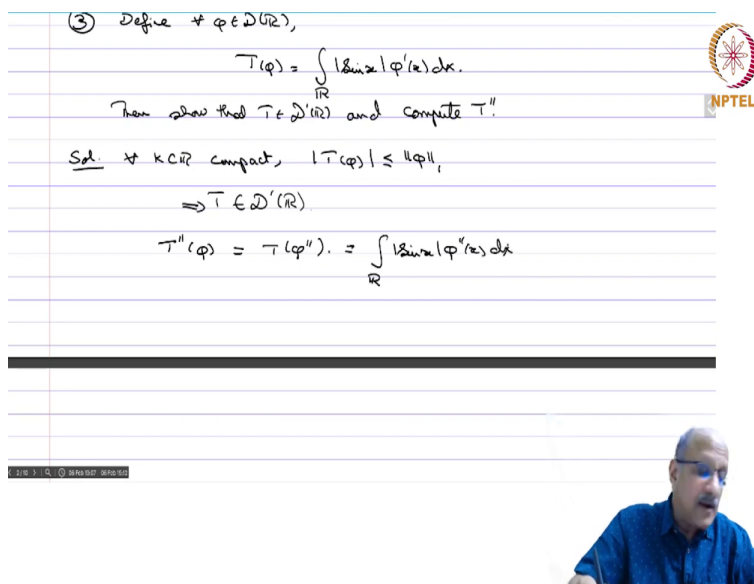 ③ Define ∀ φ ∈ D(ℝ),
T(φ) = ∫_ℝ |sin x| φ'(x) dx.
Then show that T ∈ D'(ℝ) and compute T''.
Sol. ∀ K⊂ℝ compact, |T(φ)| ≤ ‖φ‖₁
⟹ T ∈ D'(ℝ).
T''(φ) = T(φ''). = ∫_ℝ |sin x| φ''(x) dx
NPTEL
2/10
06 Feb 15:07 06 Feb 15:12